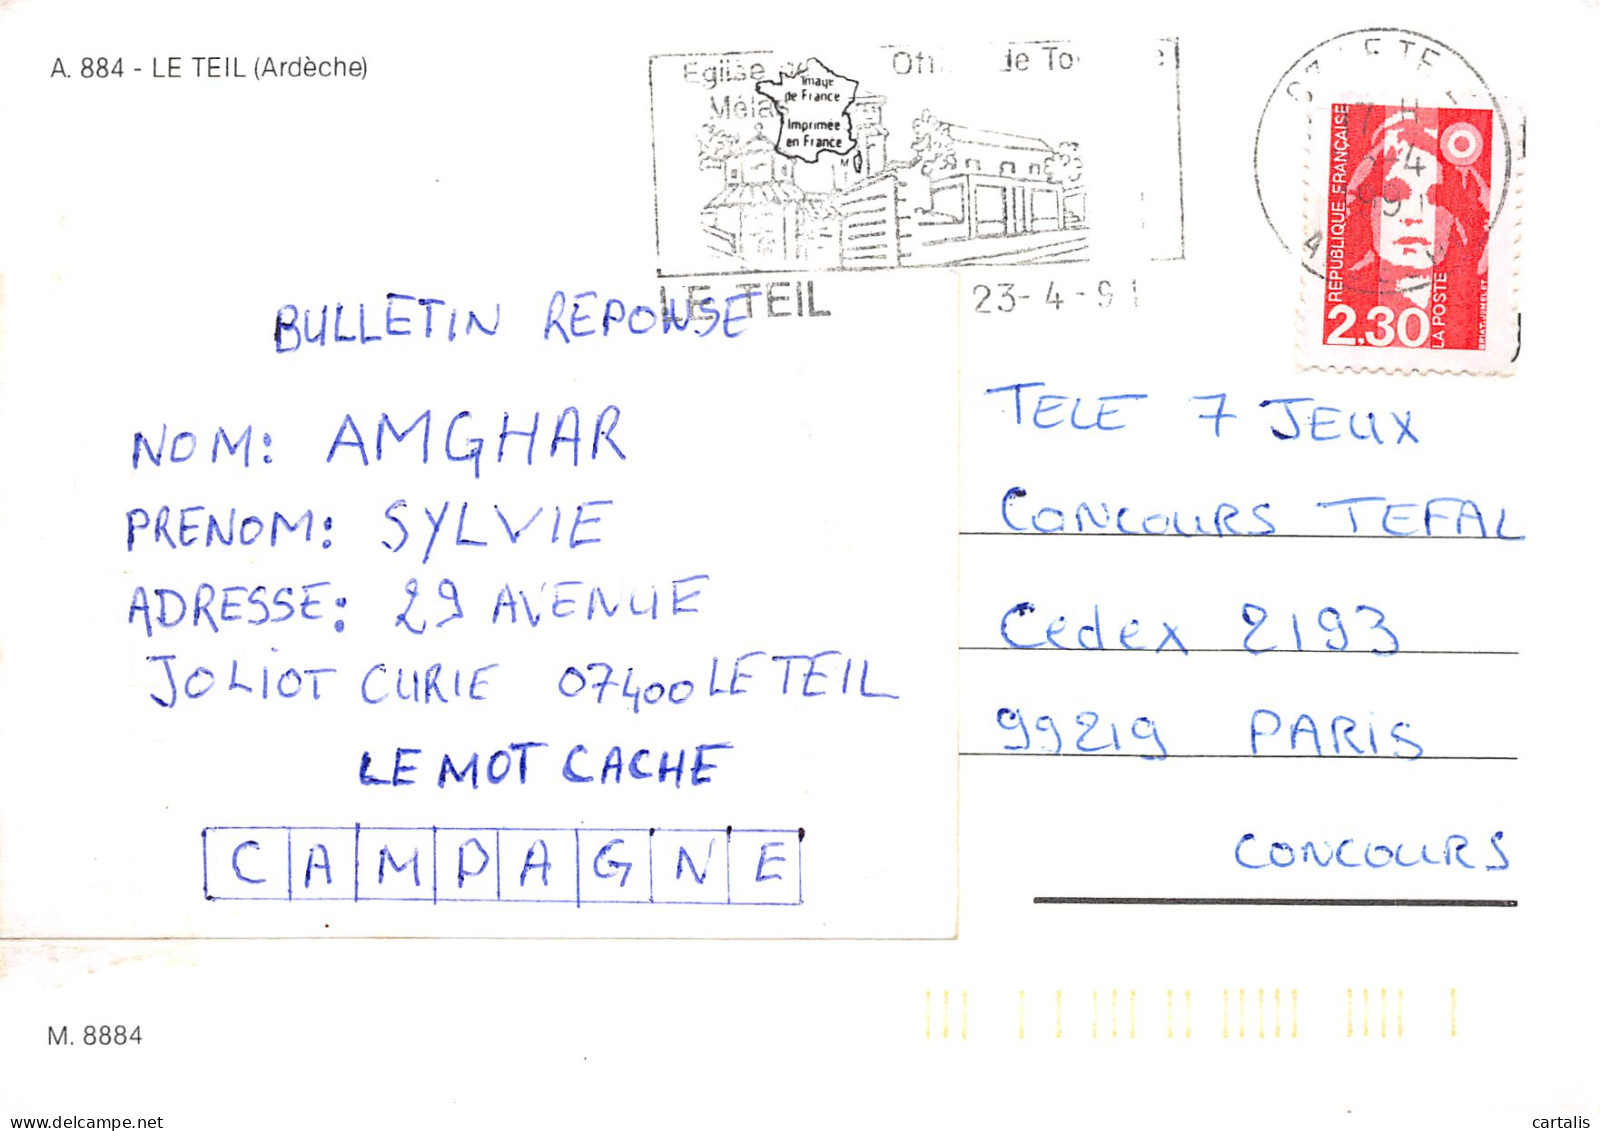 A. 884 - LE TEIL (Ardèche)
Eglise de
Mélas
Image
de France
Imprimée
en France
LE TEIL
23-4-91
RÉPUBLIQUE FRANÇAISE
2,30
LA POSTE
BRIAT-JUMELET
BULLETIN REPONSE
NOM: AMGHAR
PRENOM: SYLVIE
ADRESSE: 29 AVENUE
JOLIOT CURIE 07400 LE TEIL
LE MOT CACHE
CAMPAGNE
TELE 7 JEUX
CONCOURS TEFAL
Cedex 2193
99219 PARIS
CONCOURS
M. 8884
cartalis